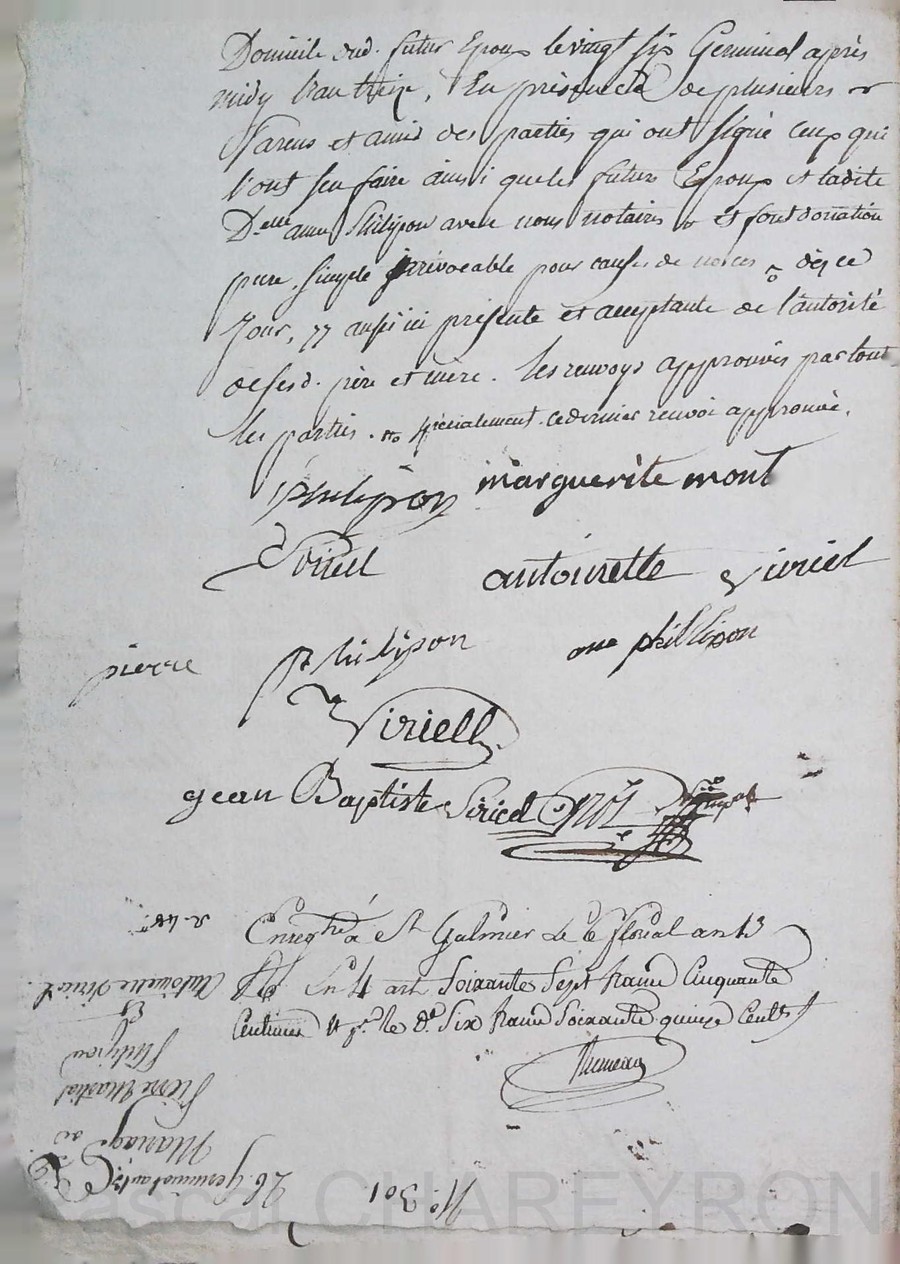 Domicile dud. futur Epoux le vingt six Germinal après
midy l'an treize, En présence de plusieurs
Parens et amis des parties qui ont signé ceux qui
l'ont seu faire ainsi que les futurs Epoux et ladite
Delle anne Philipon avec nous notaires et font donation
pure, simple irrévocable pour causes de noces dès ce
jour, aussi ici présente et acceptante de l'autorité
de sesd. père et mère. les renvoys approuvés par tout
les parties. spécialement ce dernier renvoi approuvé.
Philipon marguerite mont
Viriel antoinette Viriel
pierre philipon ane phillipon
Viriell
gean Baptiste Viricel
Enregtré à St Galmier le 6 floréal an 13
f 4 art soixante sept francs cinquante
centimes et pr le de six francs soixante quinze cents
N.o 301
26 Germinal an 13
Mariage de
Pierre Martial
Philipon
Et
Antoinette Viriel